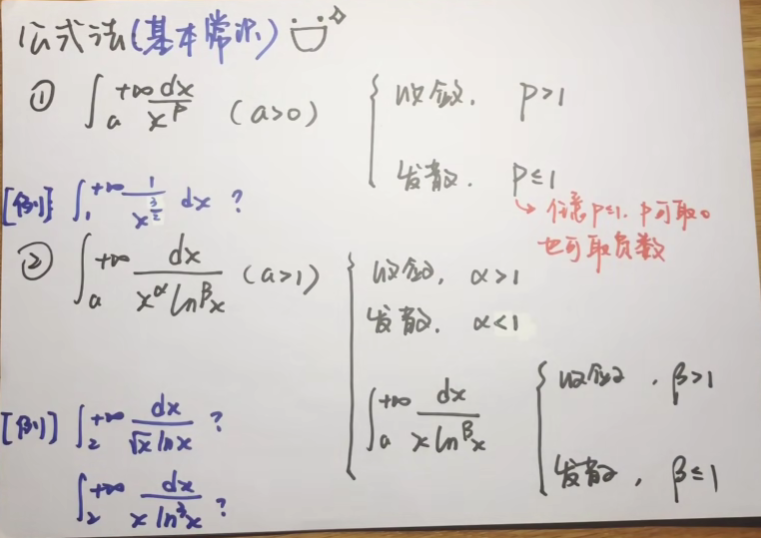 公式法(基本常识)
① ∫_a^{+∞} dx/x^p (a>0) { 收敛, p>1
发散, p≤1
→ 任意p≤1, p可取0
也可取负数
[例] ∫_1^{+∞} 1/x^{3/2} dx ?
② ∫_a^{+∞} dx/(x^α ln^β x) (a>1) { 收敛, α>1
发散, α<1
∫_a^{+∞} dx/(x ln^β x) { 收敛, β>1
发散, β≤1
[例] ∫_2^{+∞} dx/(√x ln x) ?
∫_2^{+∞} dx/(x ln^3 x) ?